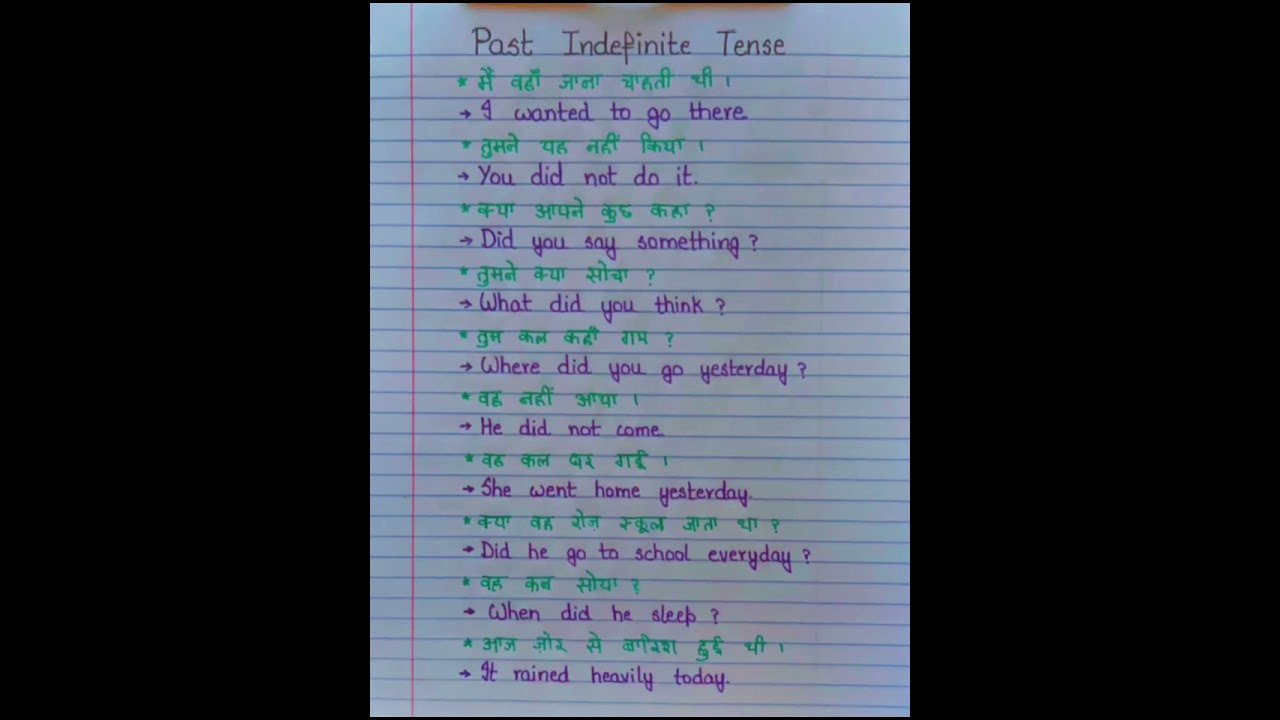 Past Indefinite Tense
* मैं वहाँ जाना चाहती थी ।
→ I wanted to go there
* तुमने यह नहीं किया ।
→ You did not do it.
* क्या आपने कुछ कहा ?
→ Did you say something ?
* तुमने क्या सोचा ?
→ What did you think ?
* तुम कल कहाँ गए ?
→ Where did you go yesterday ?
* वह नहीं आया ।
→ He did not come.
* वह कल घर गई ।
→ She went home yesterday.
* क्या वह रोज़ स्कूल जाता था ?
→ Did he go to school everyday ?
* वह कब सोया ?
→ When did he sleep ?
* आज ज़ोर से बारिश हुई थी ।
→ It rained heavily today.